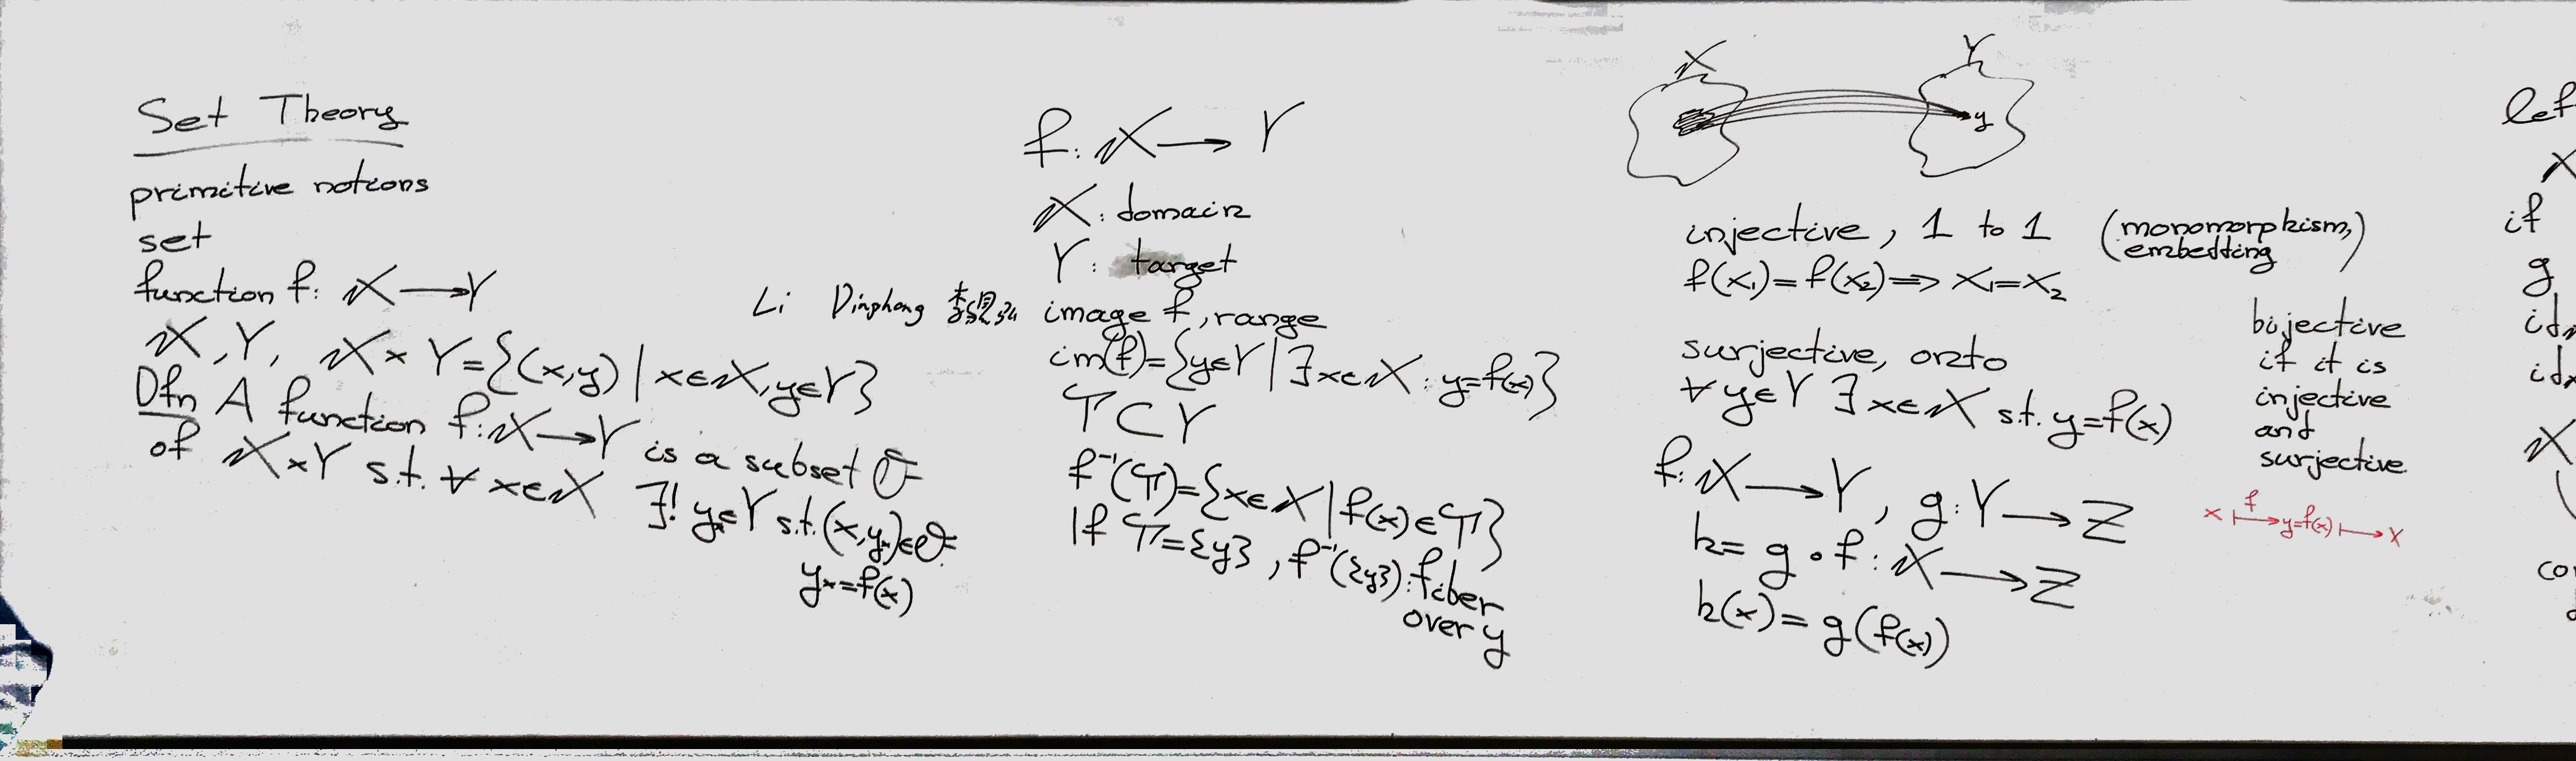 Set Theory
primitive notions
set
function f: X → Y
X, Y, X × Y = {(x,y) | x∈X, y∈Y}
Dfn A function f: X → Y is a subset
of X × Y s.t. ∀ x∈X ∃! yₓ∈Y s.t. (x, yₓ)∈
yₓ = f(x)
Li
f: X → Y
X: domain
Y: target
image f, range
im(f) = {y∈Y | ∃ x∈X : y = f(x)}
T ⊂ Y
f⁻¹(T) = {x∈X | f(x)∈T}
If T = {y}, f⁻¹({y}): fiber
over y
X Y
y
injective, 1 to 1 (monomorphism,
embedding)
f(x₁) = f(x₂) ⇒ x₁ = x₂
surjective, onto
∀ y∈Y ∃ x∈X s.t. y = f(x)
f: X → Y, g: Y → Z
h = g ∘ f : X → Z
h(x) = g(f(x))
bijective
if it is
injective
and
surjective
x ↦ y = f(x) ↦ x
f
lef
X
if
g
id
id
X
co